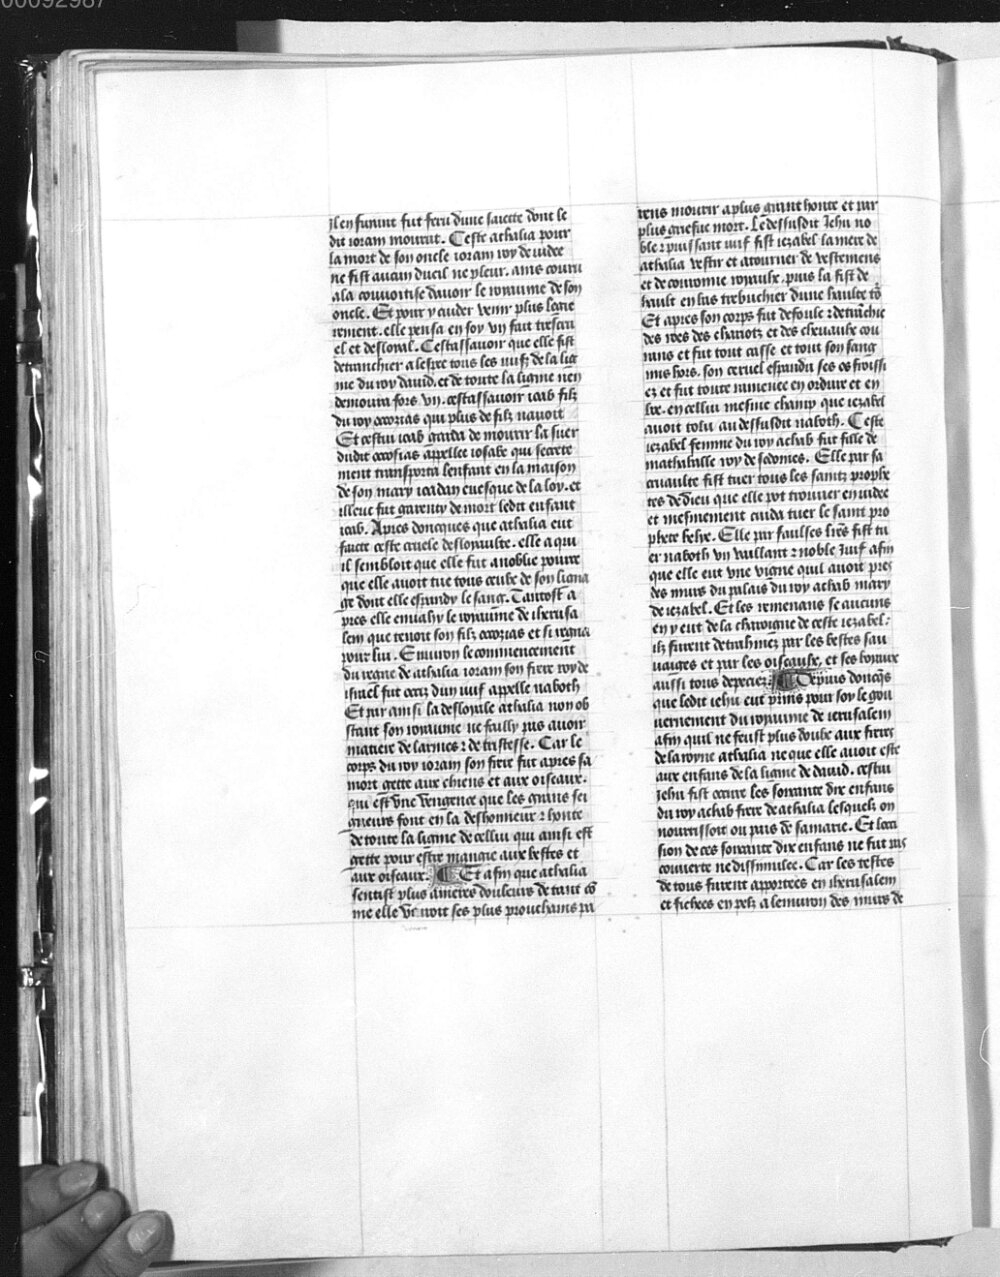 00092987
il en fuiant fut feru dune saiette dont le
dit ioram mourut. Ceste athalia pour
la mort de son oncle ioram roy de iudee
ne fist aucun dueil ne pleur. ains couru
a la couuoitise dauoir le royaume de son
oncle. Et pour y aider venir plus legie
rement. elle pensa en soy vn fait trescru
el et desloyal. Cestassauoir que elle fist
detranchier a lespee tous les iuifz de la lig
nie du roy dauid. et de toute la lignie nen
demoura fors vn. cestassauoir ioab filz
du roy ocozias qui plus de filz nauoit
Et cestui ioab garda de mourir la suer
dudit ocosias appellee iosabe qui secrete
ment transporta lenfant en la maison
de son mary ioadan euesque de la loy. et
illeuc fut garenty de mort ledit enfant
ioab. Apres doncques que athalia eut
faicte ceste cruele desloyaulte. elle a qui
il sembloit que elle fut anoblie pource
que elle auoit tue tous ceulx de son ligna
ge dont elle espandy le sang. Tantost a
pres elle enuahy le royaume de iherusa
lem que tenoit son filz ocozias et si regna
pour lui. Enuiron le commencement
du regne de athalia ioram son frere roy de
israel fut occiz dun iuif appelle naboth
Et par ainsi la desloyale athalia non ob
stant son royaume ne failly pas auoir
matiere de larmes ⁊ de tristesse. Car le
corps du roy ioram son frere fut apres sa
mort gette aux chiens et aux oiseaux.
qui est vne vengence que les grans sei
gneurs font en la deshonneur ⁊ honte
de toute la ligne de cellui qui ainsi est
gette pour estre mangie aux bestes et
aux oiseaux. ¶ Et afin que athalia
sentist plus ameres douleurs de tant cō
me elle ses plus prouchains pa
rens mourir a plus grant honte et par
plus griefue mort. Le dessusdit Jehu no
ble ⁊ puissant iuif fist iezabel la mere de
athalia vestir et atourner de vestemens
et de couronne royaulx. puis la fist de
hault en bas trebuchier dune haulte to
Et apres son corps fut defoule ⁊ detrāchie
des roes des chariotz et des cheuaulx cou
rans et fut tout casse et tout son sang
mis hors. son ceruel espandu ses os froissi
ez et fut toute ramenee en ordure et en
boe. en cellui mesme champ que iezabel
auoit tolu au dessusdit naboth. Ceste
iezabel femme du roy achab fut fille de
mathaballe roy de sidonies. Elle par sa
cruaulte fist tuer tous les saintz prophe
tes de dieu que elle pot trouuer en iudee
et mesmement cuida tuer le saint pro
phete helye. Elle par faulses lrēs fist tu
er naboth vn vaillant ⁊ noble Juif afin
que elle eut vne vigne quil auoit pres
des murs du palais du roy achab mary
de iezabel. Et les remenans se aucuns
en y eut de la charoigne de ceste iezabel:
ilz furent detrahinez par les bestes sau
uaiges et par les oiseaulx, et ses boyaux
aussi tous depeciez. ¶ Depuis doncq̄s
que ledit iehu eut prins pour soy le gou
uernement du royaume de ierusalem
afin quil ne feust plus doubte aux freres
de la royne athalia ne que elle auoit este
aux enfans de la ligne de dauid. cestui
Jehu fist occire les soixante dix enfans
du roy achab frere de athalia lesquelz on
nourrissoit ou pais de samarie. Et locci
sion de ces soixante dix enfans ne fut pas
couuerte ne dissimulee. Car les testes
de tous furent apportees en iherusalem
et fichees en pelz a lenuiron des murs de